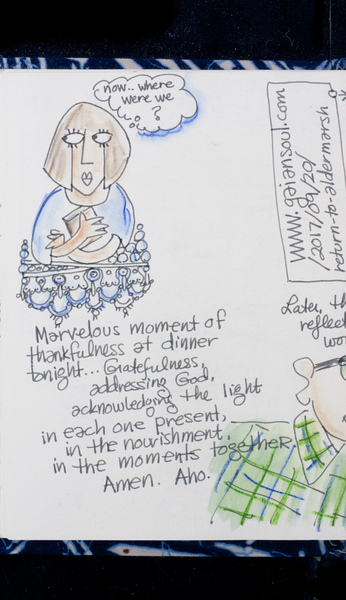 now.. where
were we
?
www.gaiansoul.com
/2017/09/20/
return-to-aldermarsh
Marvelous moment of
thankfulness at dinner
tonight... Gratefulness,
addressing God,
acknowledging the light
in each one present,
in the nourishment,
in the moments together.
Amen. Aho.
Later, th
reflect
wor